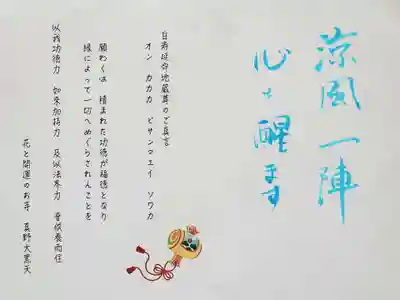 涼風一陣
心も醒ます
白寿延命地蔵尊のご真言
オン カカカ ビサンマエイ ソワカ
願わくは 積まれた功徳が福徳となり
縁によって一切へめぐらされんことを
以我功徳力 如来加持力 及以法界力 普供養而住
花と開運のお寺 真野大黒天